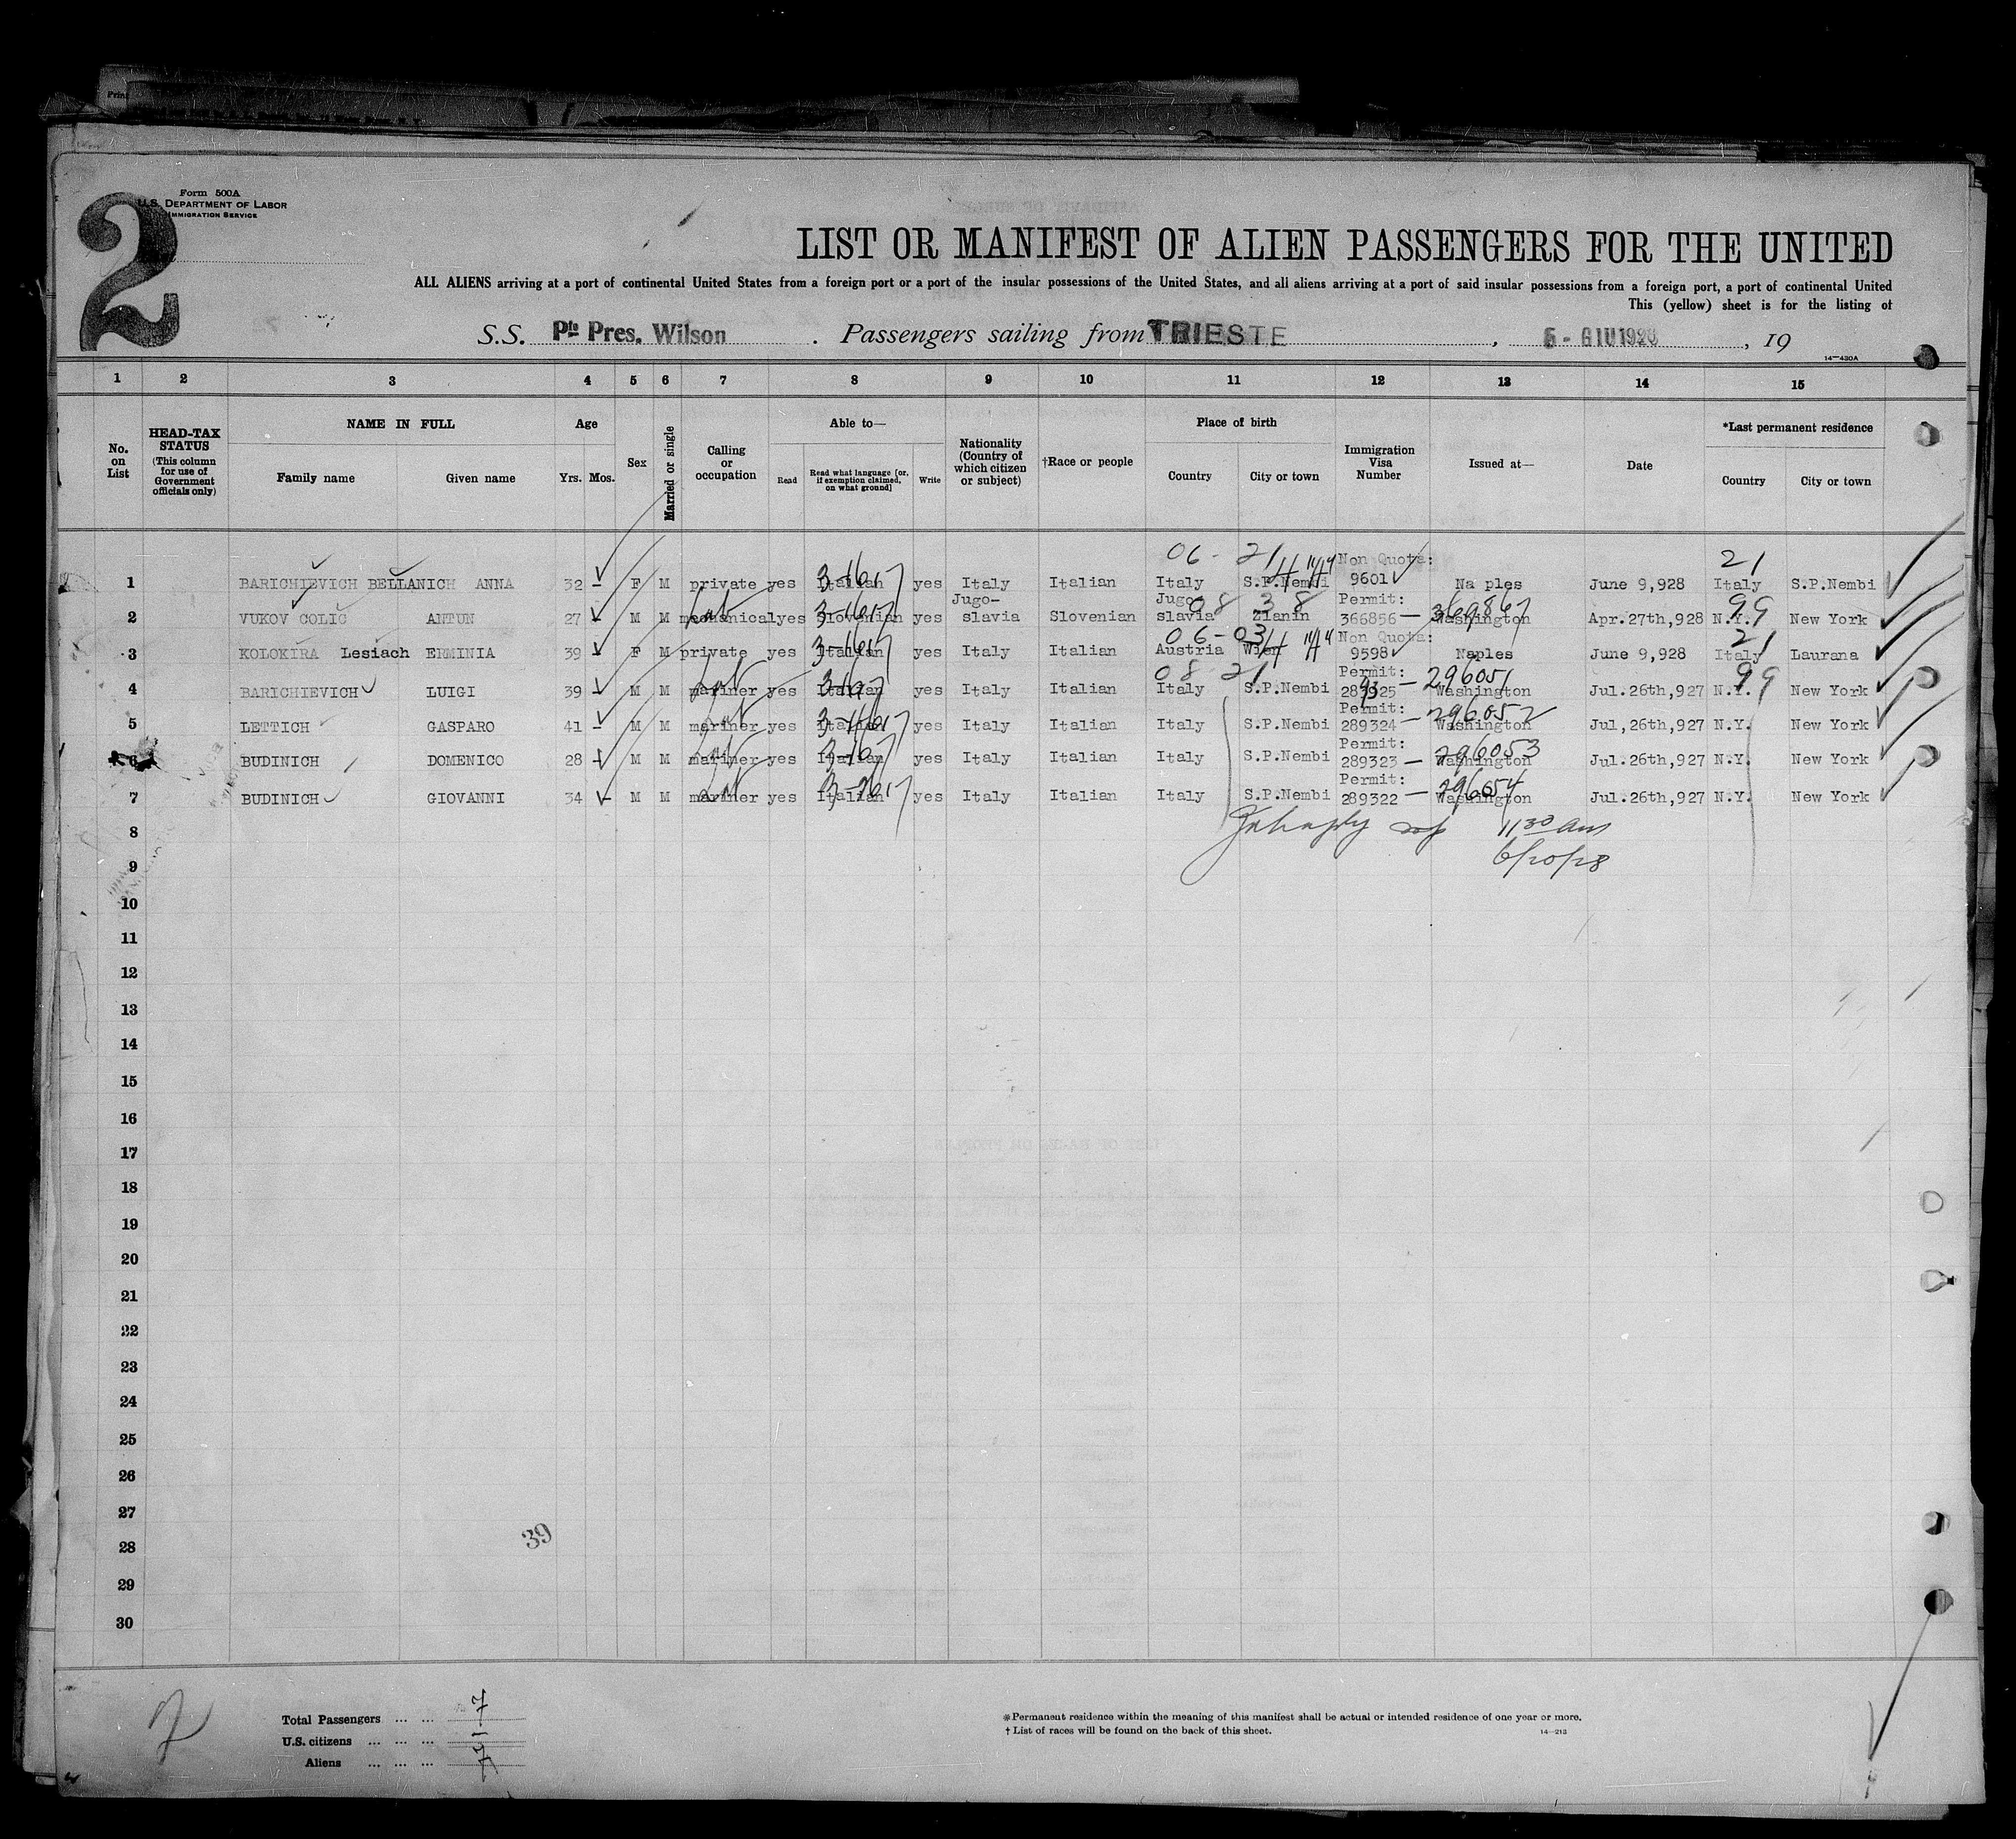 Form 500A
U.S. DEPARTMENT OF LABOR
IMMIGRATION SERVICE
2
LIST OR MANIFEST OF ALIEN PASSENGERS FOR THE UNITED
ALL ALIENS arriving at a port of continental United States from a foreign port or a port of the insular possessions of the United States, and all aliens arriving at a port of said insular possessions from a foreign port, a port of continental United
This (yellow) sheet is for the listing of
S.S. Pte Pres. Wilson . Passengers sailing from TRIESTE , 5 - GIU 1928 , 19
14—430A
1 2 3 4 5 6 7 8 9 10 11 12 13 14 15
No. on List
HEAD-TAX STATUS (This column for use of Government officials only)
NAME IN FULL
Family name Given name
Age
Yrs. Mos.
Sex
Married or single
Calling or occupation
Able to—
Read
Read what language [or, if exemption claimed, on what ground]
Write
Nationality (Country of which citizen or subject)
†Race or people
Place of birth
Country City or town
Immigration Visa Number
Issued at—
Date
*Last permanent residence
Country City or town
06 - 21 Non Quota: 21
1 BARICHIEVICH BELLANICH ANNA 32 – F M private yes Italian yes Italy Italian Italy S.P.Nembi 9601 Na ples June 9,928 Italy S.P.Nembi
Jugo- Jugo- 38 Permit: 99
2 VUKOV COLIC ANTUN 27 – M M mechanical yes Slovenian yes slavia Slovenian slavia Zlanin 366856 — 369867 Washington Apr.27th,928 N.Y. New York
06 - 03 Non Quota: 21
3 KOLOKIRA Lesiach ERMINIA 39 – F M private yes Italian yes Italy Italian Austria Wien 9598 Naples June 9,928 Italy Laurana
08 21 Permit: 99
4 BARICHIEVICH LUIGI 39 – M M mariner yes Italian yes Italy Italian Italy S.P.Nembi 289325 — 296051 Washington Jul.26th,927 N.Y. New York
Permit:
5 LETTICH GASPARO 41 – M M mariner yes Italian yes Italy Italian Italy S.P.Nembi 289324 — 296052 Washington Jul,26th,927 N.Y. New York
Permit:
6 BUDINICH DOMENICO 28 – M M mariner yes Italian yes Italy Italian Italy S.P.Nembi 289323 — 296053 Washington Jul.26th,927 N.Y. New York
Permit:
7 BUDINICH GIOVANNI 34 – M M mariner yes Italian yes Italy Italian Italy S.P.Nembi 289322 — 296054 Washington Jul.26th,927 N.Y. New York
8 11 30 am
9 6/20/28
10
11
12
13
14
15
16
17
18
19
20
21
22
23
24
25
26
27
39
28
29
30
Total Passengers ... ... 7
U.S. citizens ... ... ... –
Aliens ... ... ... 7
*Permanent residence within the meaning of this manifest shall be actual or intended residence of one year or more.
†List of races will be found on the back of this sheet. 14—213